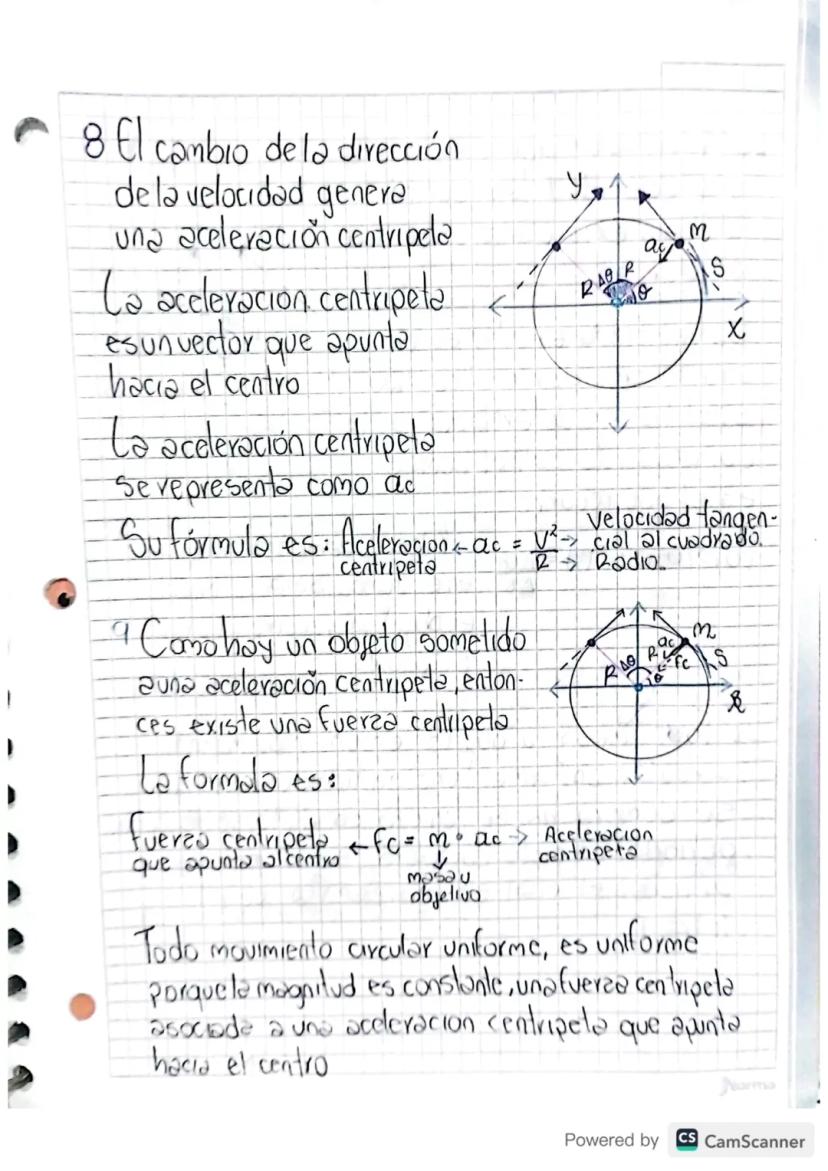 8 El cambio de la dirección
de la velocidad genera
una aceleración centripeta
La aceleracion centripeta
es un vector que apunta
hacia el centro
La aceleración centripeta
se representa como ac
Su fórmula es: Aceleracion centripeta ← ac = V²/R → velocidad tangencial al cuadrado. → Radio.
y
m
ac
S
R Δθ R θ
x
9 Como hay un objeto sometido
a una aceleración centripeta, enton-
ces existe una fuerza centripeta
m
ac
R
fc
S
R Δθ θ
La formula es:
fuerza centripeta que apunta al centro ← fc = m • ac → Aceleracion centripeta
↓
masa u
objetivo
Todo movimiento circular uniforme, es uniforme
porque la magnitud es constante, una fuerza centripeta
asociada a una aceleracion centripeta que apunta
hacia el centro
Norma
Powered by CS CamScanner